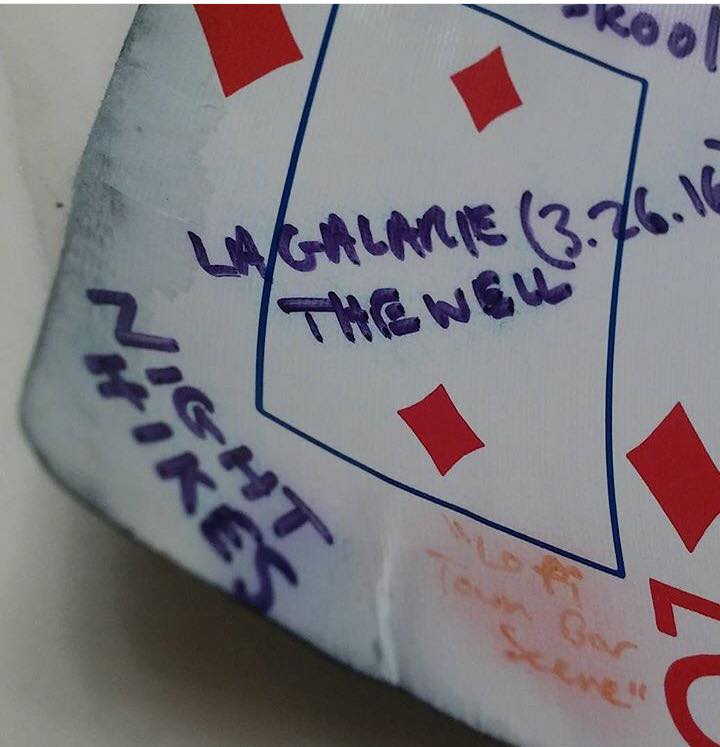 skool
LA GALARIE (3.26.16)
THE WELL
NIGHT
HIKES
"Lo fi
Town Bar
Scene"
10